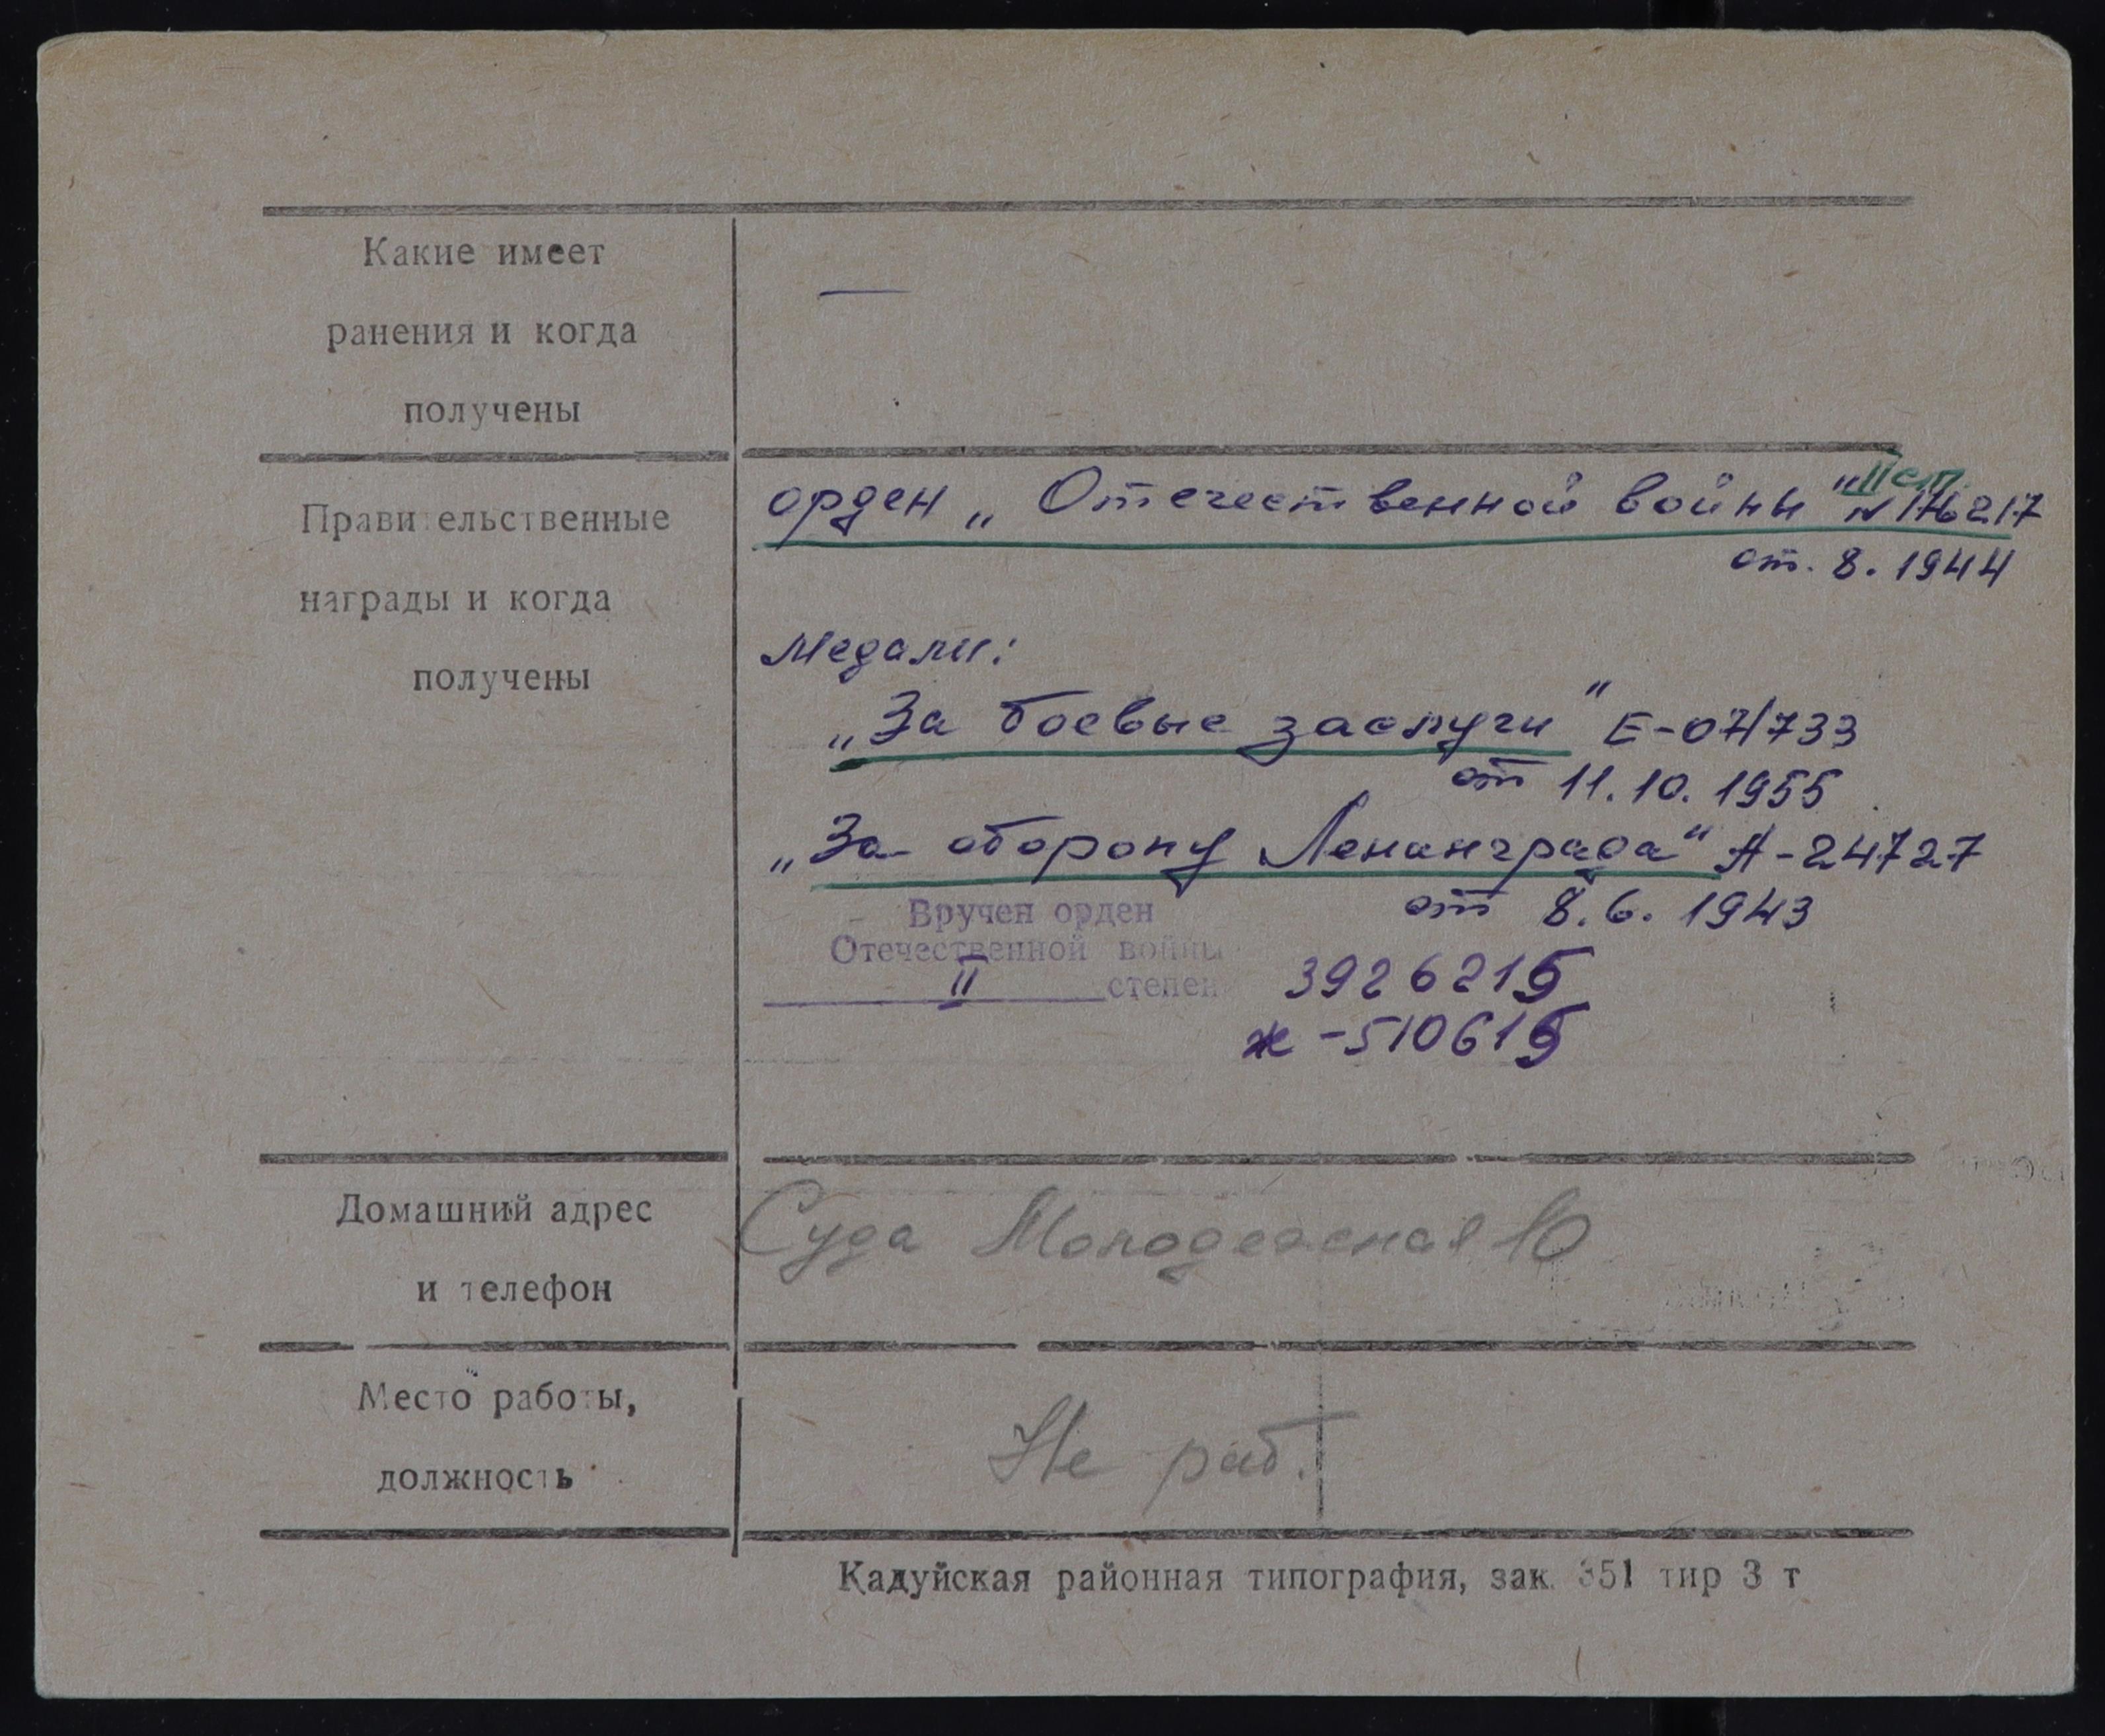 Какие имеет
ранения и когда
получены
—
Правительственные
награды и когда
получены
орден „Отечественной войны" II ст. № 176217
от. 8. 1944
Медали:
„За боевые заслуги" Е-071733
от 11.10.1955
„За оборону Ленинграда" А-24727
от 8.6.1943
Вручен орден
Отечественной войны
II степени
3926215
ж-510615
Домашний адрес
и телефон
Суда Молодежная 10
Место работы,
должность
Не раб.
Кадуйская районная типография, зак. 351 тир 3 т